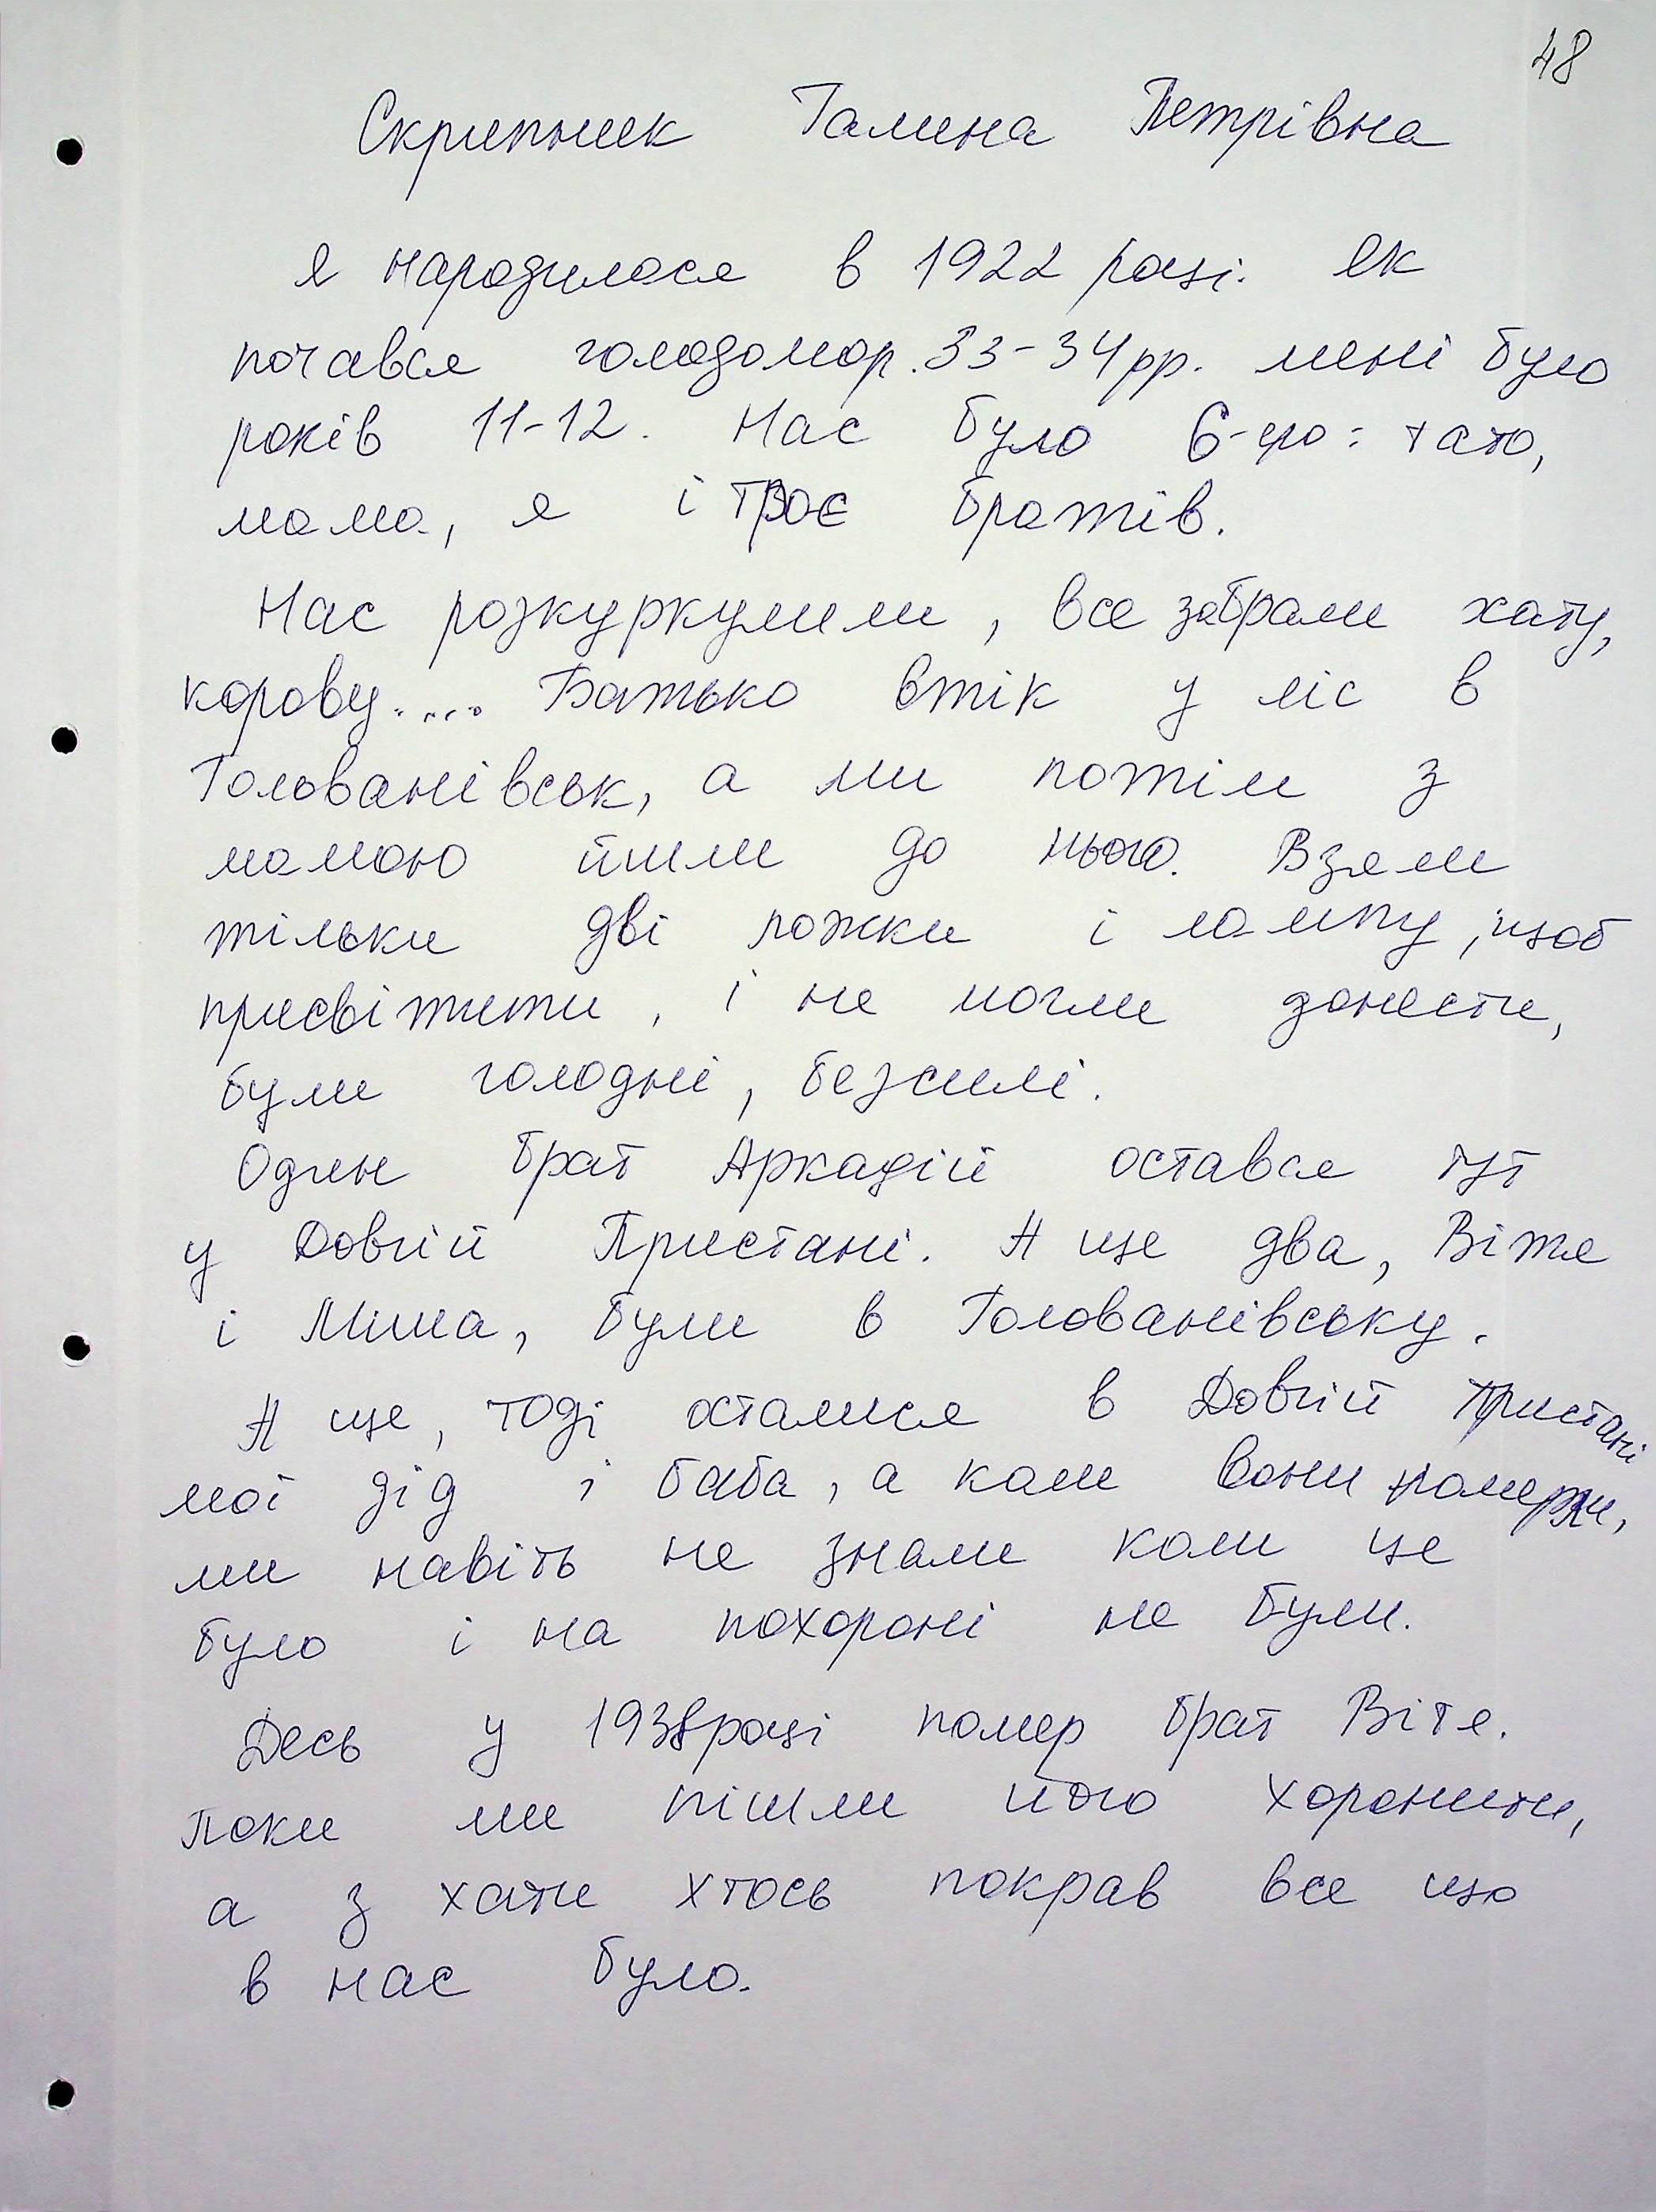 48
Скрипник Галина Петрівна
Я народилася в 1922 році. Як
почався голодомор. 33-34рр. мені було
років 11-12. Нас було 6-ро: тато,
мама, я і троє братів.
Нас розкуркулили, все забрали хату,
корову.... Батько втік у ліс в
Голованівськ, а ми потім з
мамою йшли до нього. Взяли
тільки дві ложки і лампу, щоб
присвітити, і не могли донести,
були голодні, безсилі.
Один брат Аркадій остався тут
у Довгій Пристані. А ще два, Вітя
і Міша, були в Голованівську.
А ще, тоді осталися в Довгій Пристані
мої дід і баба, а коли вони померли,
ми навіть не знали коли це
було і на похороні не були.
Десь у 1938році помер брат Вітя.
Поки ми пішли його хоронити,
а з хати хтось покрав все що
в нас було.